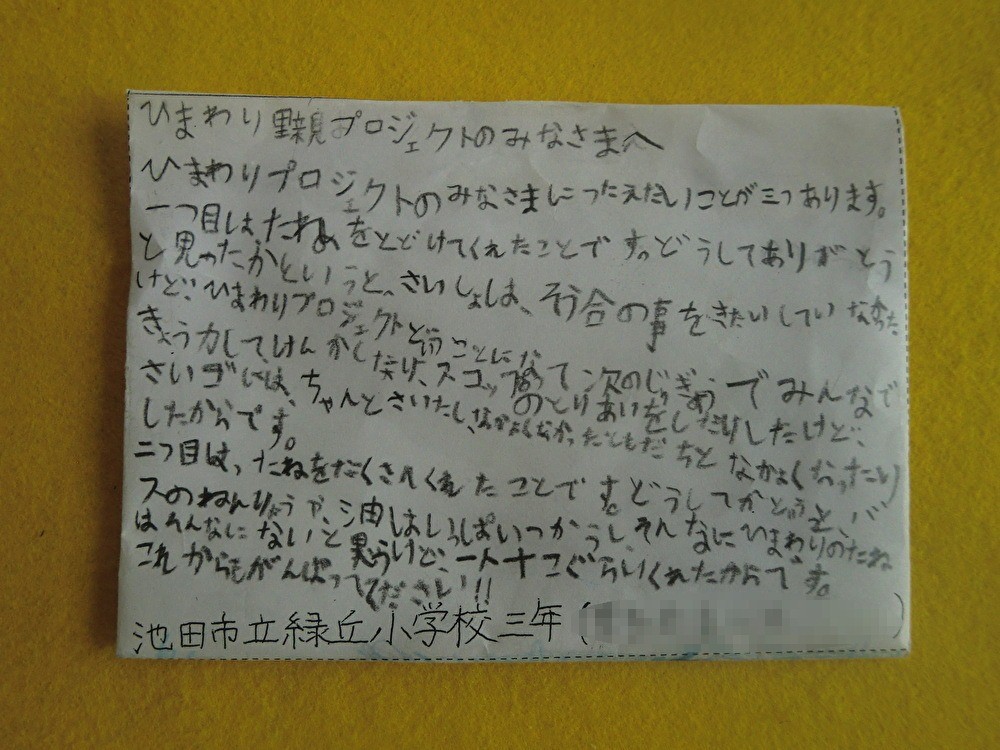 ひまわり里親プロジェクトのみなさまへ
ひまわりプロジェクトのみなさまにつたえたいことが三つあります。
一つ目は、たねをとどけてくれたことです。どうしてありがとう
と思ったかというと、さいしょは、そう合の事をきたいしていなかった
けど、ひまわりプロジェクトと行うことにな
って次のじゅぎょうでみんなで
きょう力して、けんかしたり、スコップ
のとりあいをしだりしたけど、
さいゴには、ちゃんとさいたし、なかよくなかったともだちとなかよくなったり
したからです。
二つ目は、たねをたくさんくれたことです。どうしてかというと、バ
スのねんりょうや、油はいっぱいつかうし、そんなにひまわりのたね
はそんなにないと思うけど、一人十こぐらいくれたからです。
これからもがんばってください!!
池田市立緑丘小学校三年( )